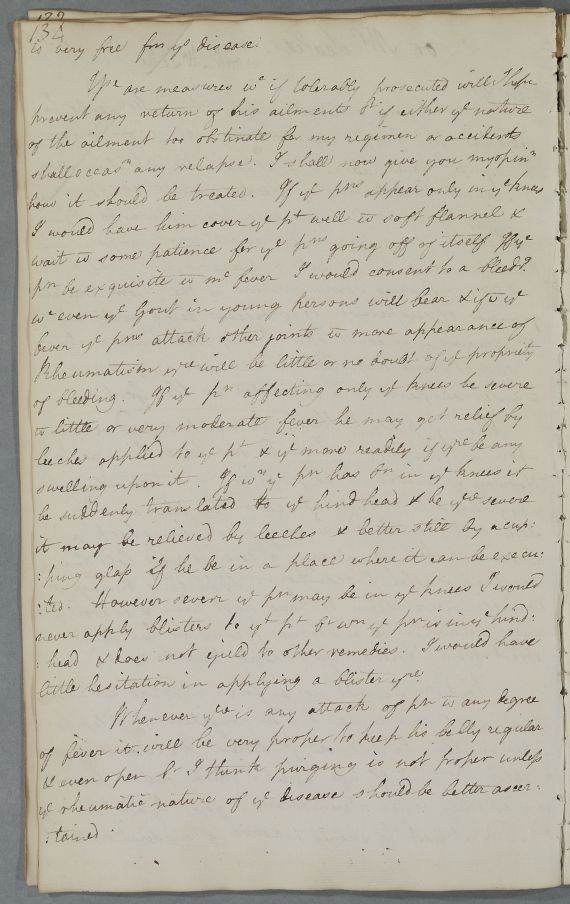 132
134
is very free from ye disease.
Yse are measures wc if tolerably prosecuted will I hope
prevent any return of his ailments Bt if either ye nature
of the ailment too obstinate for my regimen or accidents
shall occasn any relapse. I shall now give you my opinn
how it should be treated. If ye pns appear only in ye knees
I would have him cover ye pt well w soft flannel &
wait w some patience for ye pns going off of itself If ye
pn be exquisite w mc fever I would consent to a bleedg.
wc even ye Gout in young persons will bear & if w ye
fever ye pns attack other joints w more appearance of
Rheumatism yre will be little or no doubt of ye propriety
of bleeding. If ye pn affecting only ye knees be severe
w little or very moderate fever he may get relief by
leeches applied to ye pt & ye more readily if yre be any
swelling upon it. If wn ye pn has bn in ye knees it
be suddenly translated to ye hind head & be yre severe
it may be relieved by leeches & better still by a cup:
:ping glass if he be in a place where it can be execu:
:ted. However severe ye pn may be in ye knees I would
never apply blisters to yt pt Bt wn ye pn is in ye hind:
:head & does not yield to other remedies. I would have
little hesitation in applying a blister yre
Whenever yre is any attack of pn w any degree
of fever it will be very proper to keep his belly regular
& even open Bt I think purging is not proper unless
ye rheumatic nature of ye disease should be better ascer:
:tained.